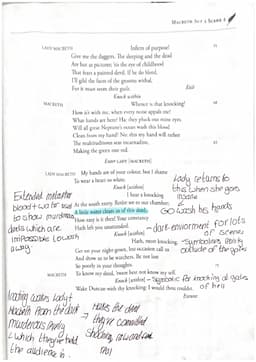 MACBETH ACT 2 SCENE 2
LADY MACBETH Infirm of purpose!
Give me the daggers. The sleeping and the dead
Are but as pictures: 'tis the eye of childhood
That fears a painted devil. If he do bleed,
I'll gild the faces of the grooms withal,
For it must seem their guilt. Exit
Knock within
MACBETH Whence is that knocking?
How is't with me, when every noise appals me?
What hands are here? Ha: they pluck out mine eyes.
Will all great Neptune's ocean wash this blood
Clean from my hand? No: this my hand will rather
The multitudinous seas incarnadine,
Making the green one red.
Enter LADY [MACBETH]
LADY MACBETH My hands are of your colour, but I shame
To wear a heart so white.
Knock [within]
I hear a knocking
At the south entry. Retire we to our chamber;
A little water clears us of this deed.
How easy is it then! Your constancy
Hath left you unattended.
Knock [within]
Hark, more knocking.
Get on your night-gown, lest occasion call us
And show us to be watchers. Be not lost
So poorly in your thoughts.
MACBETH To know my deed, 'twere best not know my self.
Knock [within]
Wake Duncan with thy knocking: I would thou couldst.
Exeunt
Lady returns to
this when she goes
insane
GO wash his hands
Extended metaphor
blood + water used
to show murderous
deeds which are
impossible to wash
away.
dark enviorment for lots
of scenes
Symbolises
outside of the gates
Symbolic for knocking at gates
of hell
Macbeth from the dark
murderous
the audience in.
Hates the deed
they've committed
shocking